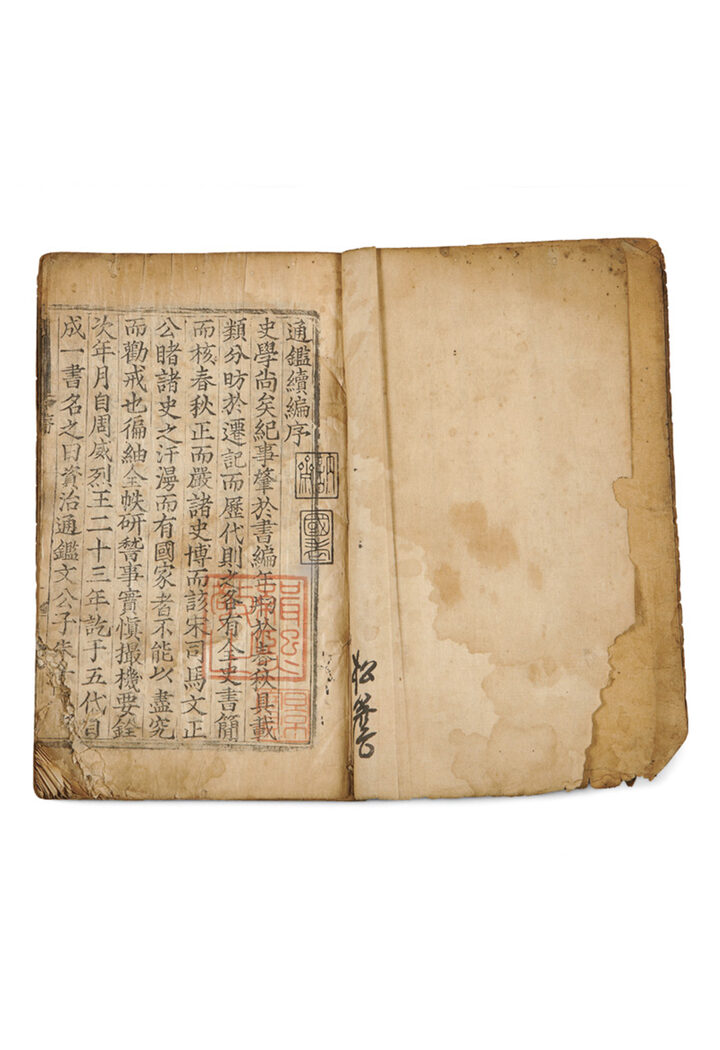 通鑑續編序
史學尚矣紀事肇於書編年昉於春秋具載
類分昉於遷記而歷代則之各有全史書簡
而核春秋正而嚴諸史博而該宋司馬文正
公睹諸史之汗漫而有國家者不能以盡究
而勸戒也徧紬全帙研嵇事實愼撮機要銓
次年月自周威烈王二十三年訖于五代目
成一書名之曰資治通鑑文公子朱
國
松